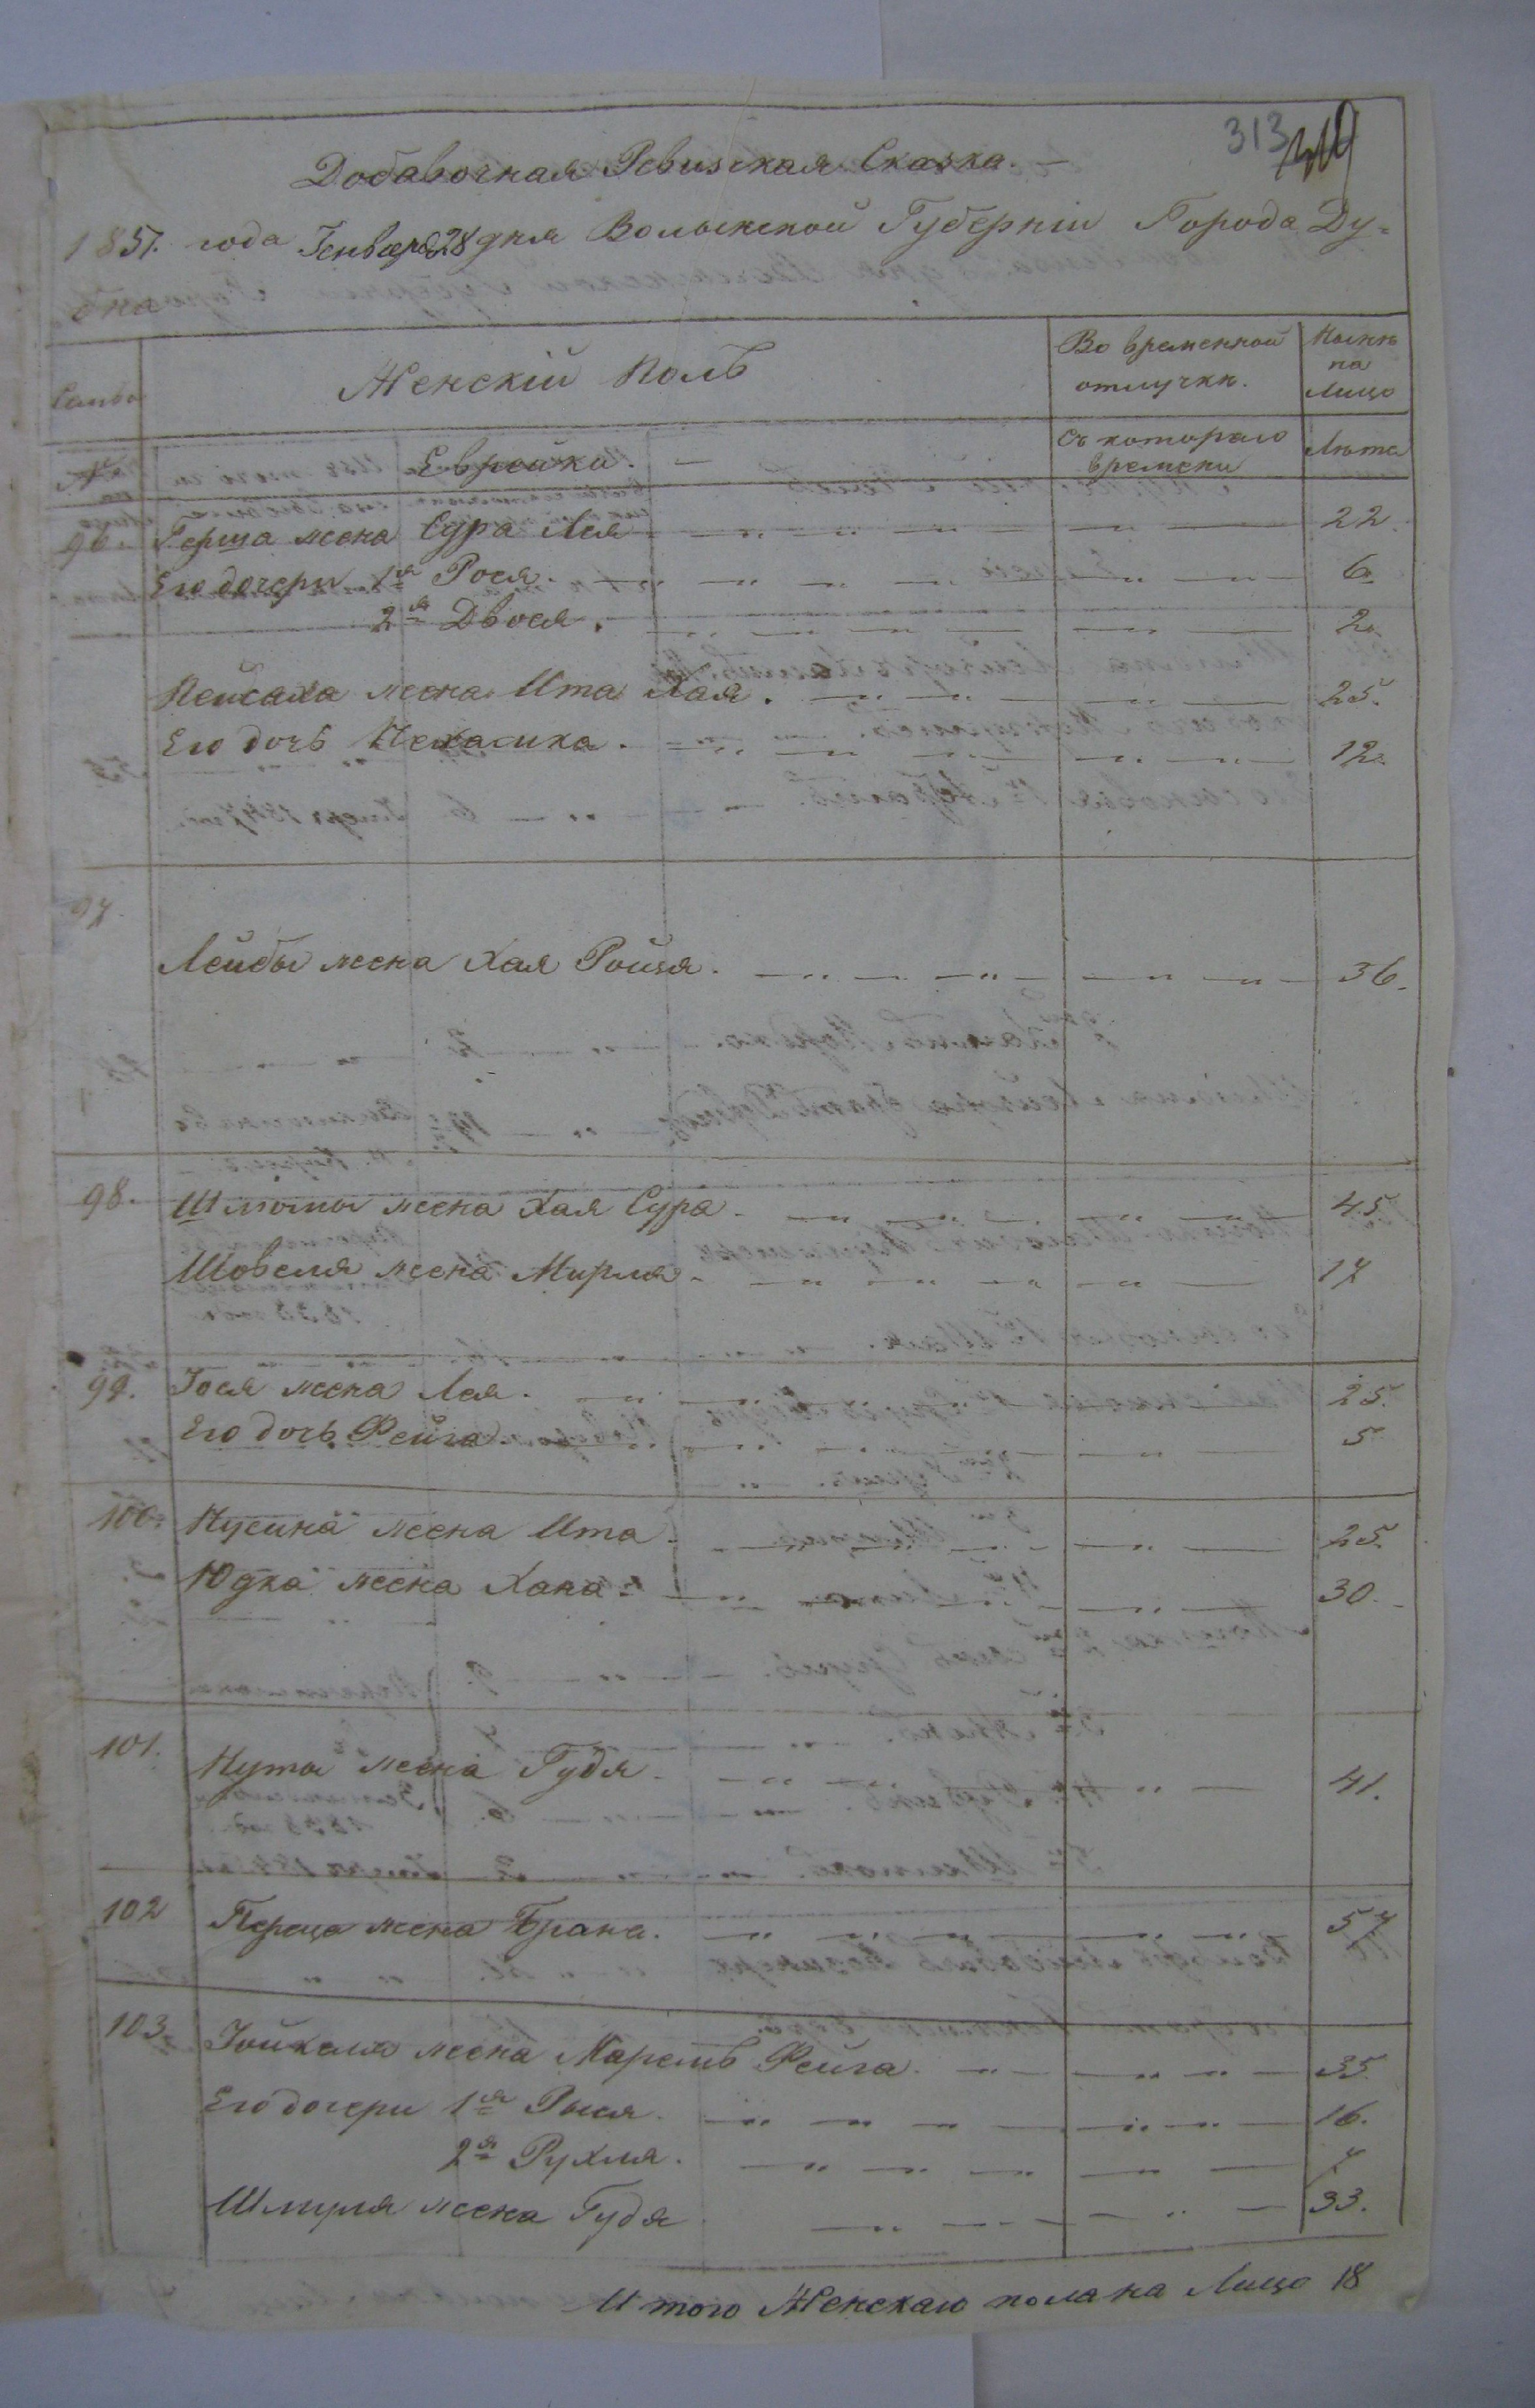 313
Добавочная Ревизская Сказка.
1851. года Генваря 28 дня Волынской Губерніи Города Ду-
бна
Женскій Полъ
Во временной отлучкѣ.
Нынѣ на Лицо
Еврейки.
Съ котораго времени
Лѣта
96. Герша жена Сура Лея 22.
Его дочери 1я Рося. 6
2я Двося. 2.
Пейсаха жена Ита Хая. 25.
Его дочь Нехасика. 12.
97. Лейбы жена Хая Ройзя. 36.
98. Шлiомы жена Хая Сура. 45.
Шовеля жена Мирля. 17
99. Іося жена Лея. 25.
Его дочь Фейга. 5
100. Нусина жена Ита 25.
Юдка жена Хана. 30.
101. Нуты жена Гудя. 41.
102 Переца жена Брана. 57
103. Іойхеля жена Маремъ Фейга. 35.
Его дочери 1я Рыся. 16.
2я Рухля. 7
Шмуля жена Гудя 33.
Итого Женскаго пола на Лицо 18